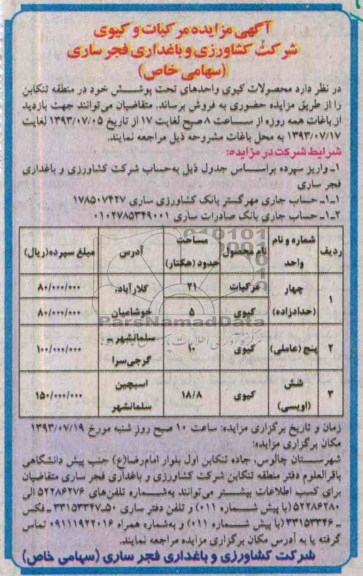 آگهی مزایده مرکبات و کیوی
شرکت کشاورزی و باغداری فجر ساری
(سهامی خاص)
در نظر دارد محصولات کیوی واحدهای تحت پوشش خود در منطقه تنکابن
را از طریق مزایده حضوری به فروش برساند. متقاضیان می‌توانند جهت بازدید
از باغات همه روزه از ساعت ۸ صبح لغایت ۱۷ از تاریخ ۱۳۹۳/۰۷/۰۵ لغایت
۱۳۹۳/۰۷/۱۷ به محل باغات مشروحه ذیل مراجعه نمایند.
شرایط شرکت در مزایده:
۱- واریز سپرده براساس جدول ذیل به‌حساب شرکت کشاورزی و باغداری
فجر ساری
۱-۱- حساب جاری مهرگستر بانک کشاورزی ساری ۱۷۸۵۰۷۴۲۷
۱-۲- حساب جاری بانک صادرات ساری ۰۱۰۲۷۸۵۳۴۹۰۰۱
ردیف شماره و نام واحد نام محصول مساحت حدود (هکتار) آدرس مبلغ سپرده(ریال)
۱ چهار (حدادزاده) مرکبات ۲۱ گلارآباد، ۸۰/۰۰۰/۰۰۰
کیوی ۵ خوشامیان ۸۰/۰۰۰/۰۰۰
۲ پنج (عاملی) کیوی ۱۰ سلمانشهر - گرجی‌سرا ۱۰۰/۰۰۰/۰۰۰
۳ شش (اویسی) کیوی ۱۸/۸ اسبچین سلمانشهر ۱۵۰/۰۰۰/۰۰۰
ParsNamadData
زمان و تاریخ برگزاری مزایده: ساعت ۱۰ صبح روز شنبه مورخ ۱۳۹۳/۰۷/۱۹
مکان برگزاری مزایده:
شهرستان چالوس، جاده تنکابن اول بلوار امام‌رضا(ع) جنب پیش دانشگاهی
باقرالعلوم دفتر منطقه تنکابن شرکت کشاورزی و باغداری فجر ساری متقاضیان
برای کسب اطلاعات بیشتر می‌توانند به‌شماره تلفن‌های ۵۲۲۸۶۲۷۶ الی
۵۲۲۸۶۲۸۰ (با پیش شماره ۰۱۱) و تلفن دفتر ساری ۵۰-۳۳۱۵۳۳۴۷ - فکس
۳۳۱۵۳۳۴۶ (با پیش شماره ۰۱۱) و به‌شماره همراه ۰۹۱۱۱۹۲۲۰۱۶ تماس
گرفته یا به آدرس مکان برگزاری مزایده مراجعه نمایند.
شرکت کشاورزی و باغداری فجر ساری (سهامی خاص)